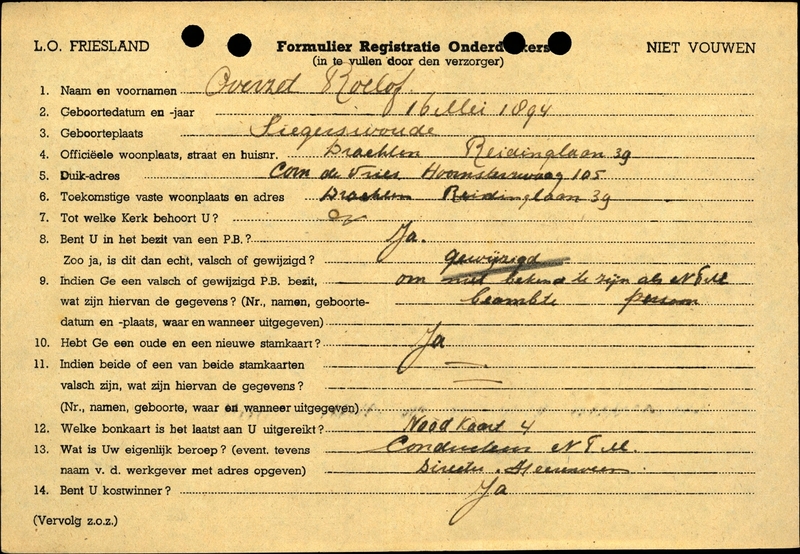 L.O. FRIESLAND Formulier Registratie Onderduikers NIET VOUWEN
(in te vullen door den verzorger)
1. Naam en voornamen Overzet Roelof
2. Geboortedatum en -jaar 16 Mei 1894
3. Geboorteplaats Siegerswoude
4. Officiëele woonplaats, straat en huisnr. Drachten Reidinglaan 39
5. Duik-adres Com de Vries Hoornsterzwaag 105
6. Toekomstige vaste woonplaats en adres Drachten Reidinglaan 39
7. Tot welke Kerk behoort U?
8. Bent U in het bezit van een P.B.? Ja.
Zoo ja, is dit dan echt, valsch of gewijzigd? gewijzigd
9. Indien Ge een valsch of gewijzigd P.B. bezit, om niet bekend te zijn als NTM
wat zijn hiervan de gegevens? (Nr., namen, geboorte- beambte persoon
datum en -plaats, waar en wanneer uitgegeven)
10. Hebt Ge een oude en een nieuwe stamkaart? Ja
11. Indien beide of een van beide stamkaarten —
valsch zijn, wat zijn hiervan de gegevens? —
(Nr., namen, geboorte, waar en wanneer uitgegeven)
12. Welke bonkaart is het laatst aan U uitgereikt? Nood Kaart 4
13. Wat is Uw eigenlijk beroep? (event. tevens Conducteur NTM.
naam v. d. werkgever met adres opgeven) Directie Heerenveen
14. Bent U kostwinner? Ja
(Vervolg z.o.z.)